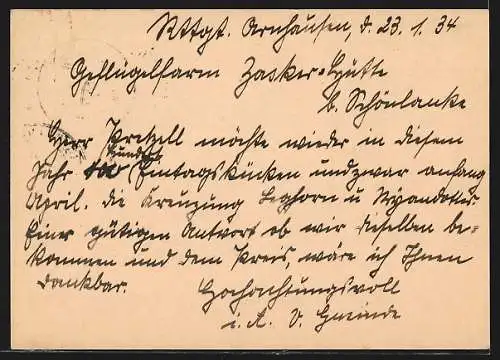 Rttgt. Arnhausen, d. 23.1.34
Geflügelfarm Zasker-Hütte
b. Schönlanke
Herr Pretzell möchte wieder in diesem
Jahr hundert Eintagskücken und zwar anfang
April. die Kreuzung Leghorn u Wyandottes
Einer gütigen Antwort ob wir dieselben be-
kommen und dem Preis, wäre ich Ihnen
dankbar.
Hochachtungsvoll
i. A. V. Gmeinde